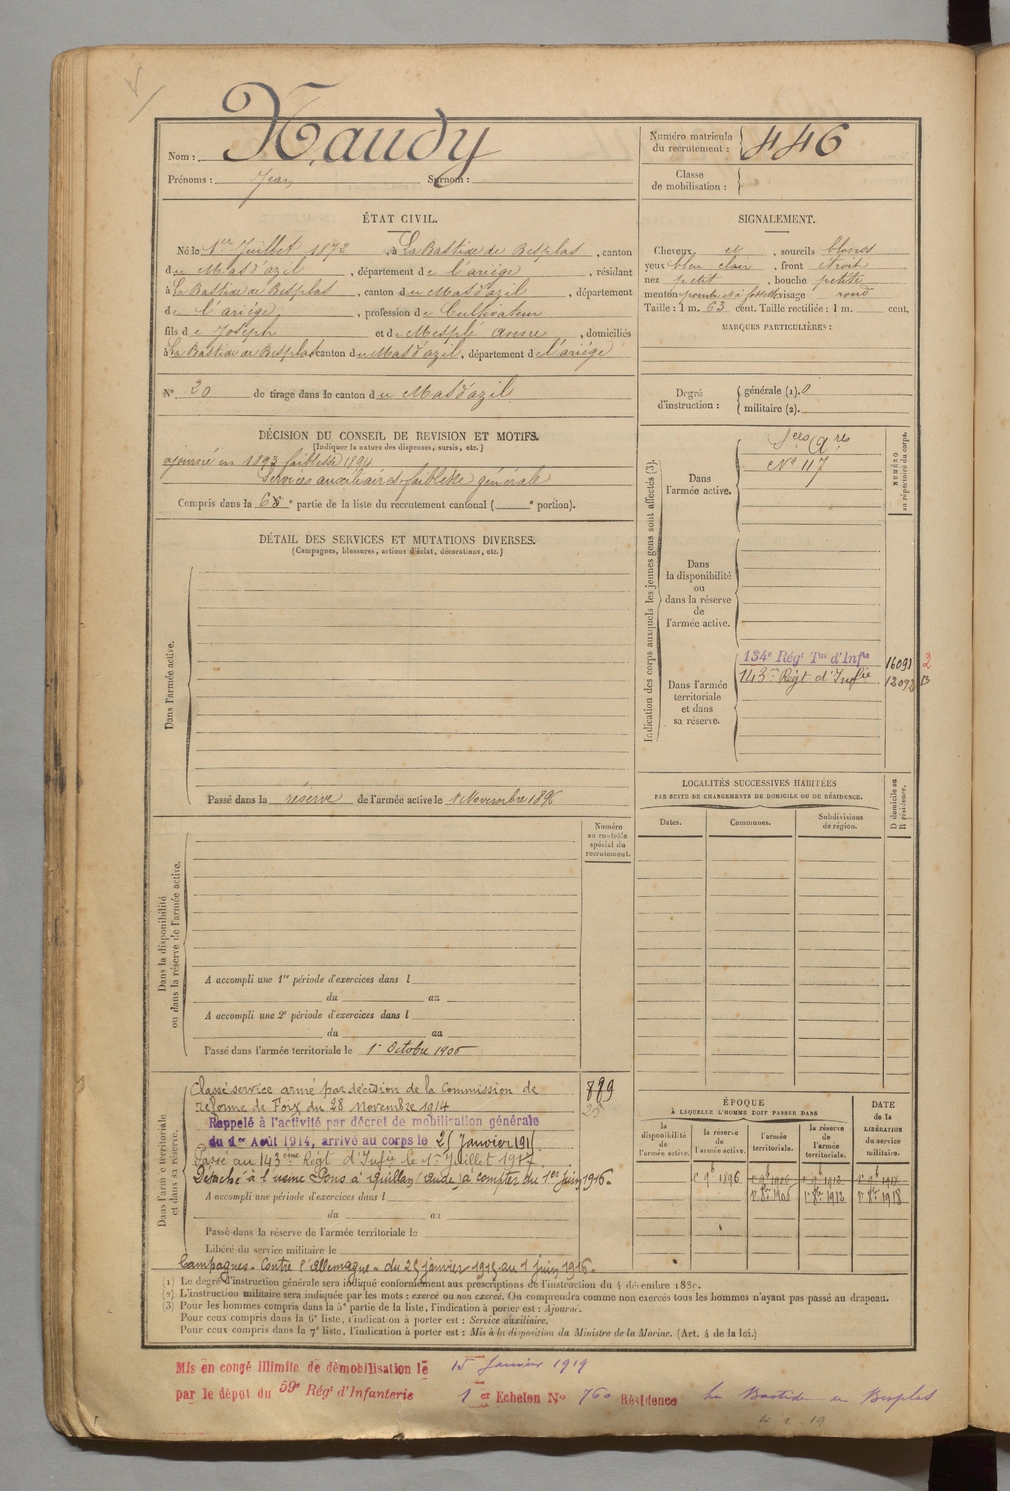 Nom : Naudy
Prénoms : Jean Surnom :
Numéro matricule du recrutement : 446
Classe de mobilisation :
ÉTAT CIVIL.
Né le 1er Juillet 1872, à La Bastide de Besplas, canton
du Mas d'azil, département de l'ariège, résidant
à La Bastide de Besplas, canton du Mas d'azil, département
de l'ariège, profession de Cultivateur
fils de Joseph et de Mesplé Anne, domiciliés
à La Bastide de Besplas canton du Mas d'azil, département de l'ariège
N° 20 de tirage dans le canton du Mas d'azil
SIGNALEMENT.
Cheveux et, sourcils blonds
yeux bleu clair, front étroit
nez petit, bouche petite
menton pointu et à fossette visage rond
Taille : 1 m. 63 cent. Taille rectifiée : 1 m. cent.
MARQUES PARTICULIÈRES :
Degré d'instruction : générale (1). 0
militaire (2).
DÉCISION DU CONSEIL DE REVISION ET MOTIFS.
(Indiquer la nature des dispenses, sursis, etc.)
ajourné en 1893 faiblesse 1894
Services auxiliaires faiblesse générale
Compris dans la 6e partie de la liste du recrutement cantonal ( e portion).
DÉTAIL DES SERVICES ET MUTATIONS DIVERSES.
(Campagnes, blessures, actions d'éclat, décorations, etc.)
Dans l'armée active.
Passé dans la réserve de l'armée active le 1 Novembre 1896
Indication des corps auxquels les jeunes gens sont affectés (3).
NUMÉRO au répertoire du corps.
Dans l'armée active.
Sces Ares
N° 117
Dans la disponibilité ou dans la réserve de l'armée active.
Dans l'armée territoriale et dans sa réserve.
134e Régt Tal d'Infie 16091 2
143me Régt d'Infie 12092 13
LOCALITÉS SUCCESSIVES HABITÉES
PAR SUITE DE CHANGEMENTS DE DOMICILE OU DE RÉSIDENCE.
Dates. Communes. Subdivisions de région. D domicile ou R résidence.
Numéro au contrôle spécial du recrutement.
Dans la disponibilité ou dans la réserve de l'armée active.
A accompli une 1re période d'exercices dans l
du au
A accompli une 2e période d'exercices dans l
du au
Passé dans l'armée territoriale le 1er Octobre 1906
Dans l'armée territoriale et dans sa réserve.
Classé service armé par décision de la Commission de 789
réforme de Foix du 28 novembre 1914
Rappelé à l'activité par décret de mobilisation générale
du 1er Août 1914, arrivé au corps le 25 Janvier 1915
Passé au 143ème Régt d'Infie le 1er Juillet 1917.
Détaché à l'usine Pons à Quillan (Aude) à compter du 1er juin 1916.
A accompli une période d'exercices dans l
du au
Passé dans la réserve de l'armée territoriale le
Libéré du service militaire le
Campagnes. Contre l'Allemagne. du 25 janvier 1915 au 1 juin 1916.
ÉPOQUE
À LAQUELLE L'HOMME DOIT PASSER DANS
la disponibilité de l'armée active. la réserve de l'armée active. l'armée territoriale. la réserve de l'armée territoriale.
DATE de la LIBÉRATION du service militaire.
1er 9b 1896 1er 9b 1906 1er 9b 1912 1er 9b 1918
1er 8bre 1906 1er 8bre 1912 1er 8bre 1918
(1) Le degré d'instruction générale sera indiqué conformément aux prescriptions de l'instruction du 4 décembre 1889.
(2) L'instruction militaire sera indiquée par les mots : exercé ou non exercé. On comprendra comme non exercés tous les hommes n'ayant pas passé au drapeau.
(3) Pour les hommes compris dans la 5e partie de la liste, l'indication à porter est : Ajourné.
Pour ceux compris dans la 6e liste, l'indication à porter est : Service auxiliaire.
Pour ceux compris dans la 7e liste, l'indication à porter est : Mis à la disposition du Ministre de la Marine. (Art. 4 de la loi.)
Mis en congé illimité de démobilisation le 15 Janvier 1919
par le dépot du 59e Régt d'Infanterie 1er Echelon N° 760 Résidence La Bastide de Besplas